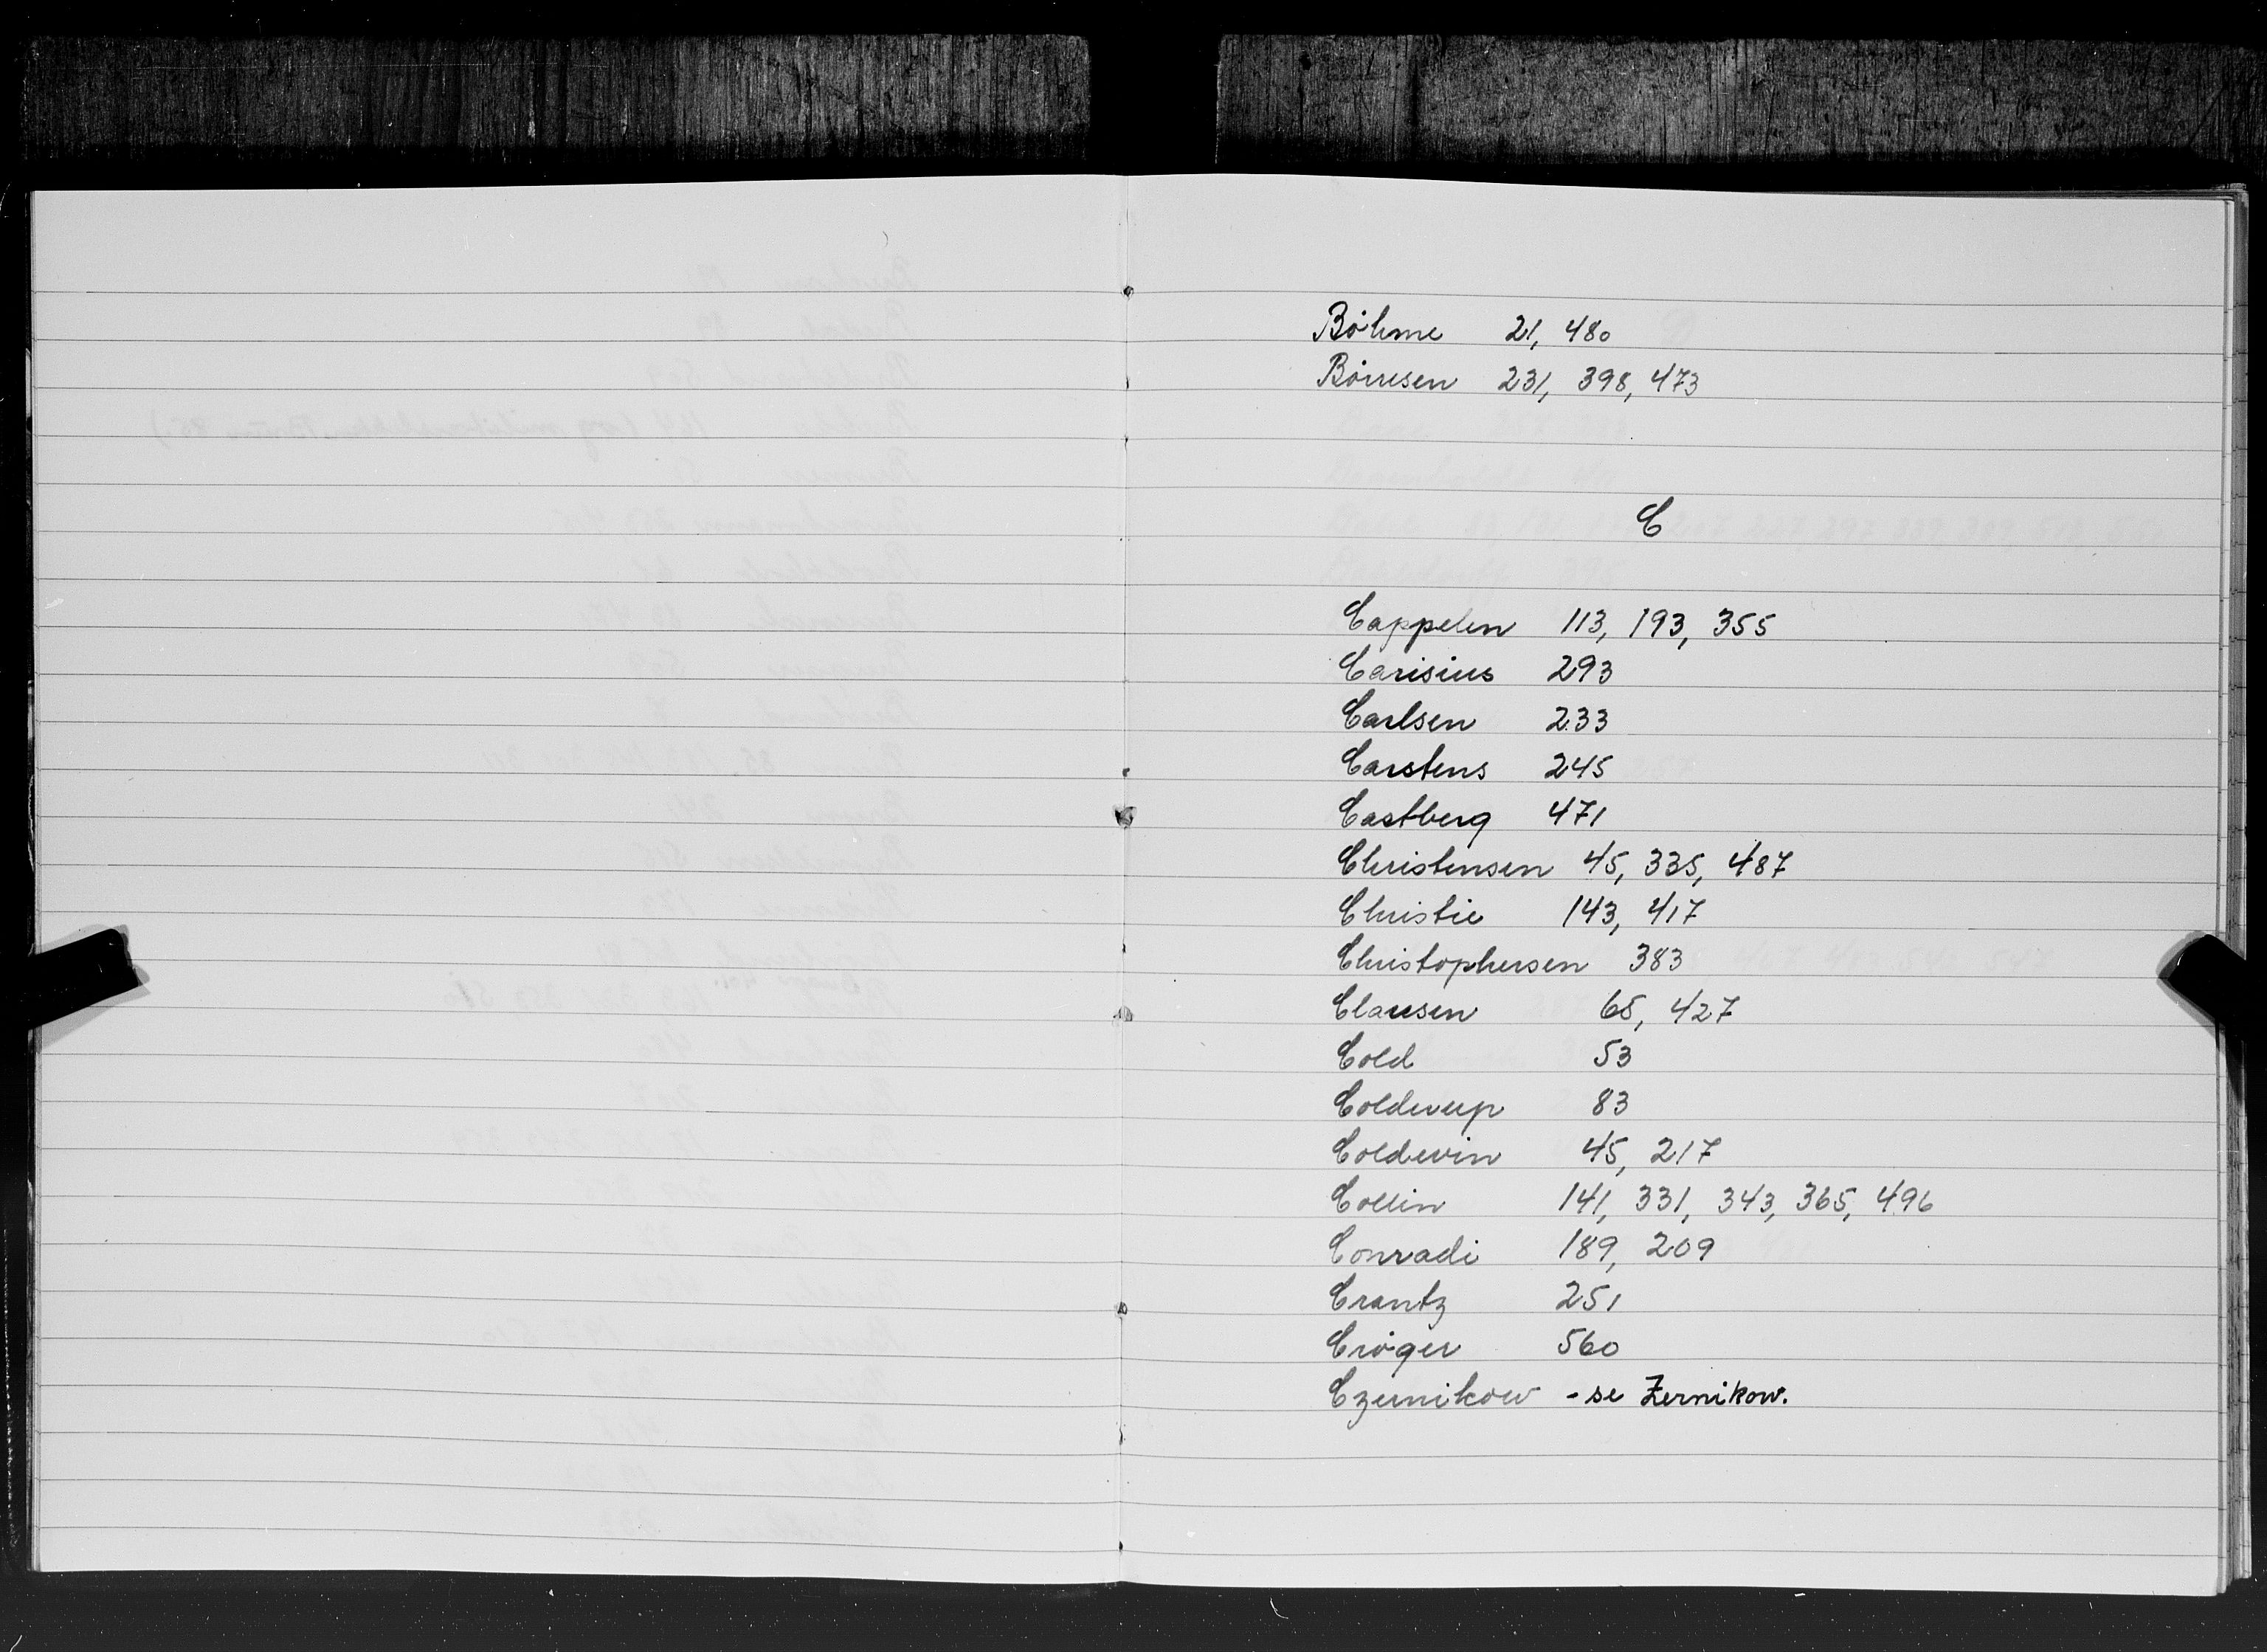 Bøhme 21, 480
Børresen 231, 398, 473
C
Cappelen 113, 193, 355
Carisius 293
Carlsen 233
Carstens 245
Castberg 471
Christensen 45, 335, 487
Christie 143, 417
Christophersen 383
Clausen 65, 427
Cold 53
Colderup 83
Coldevin 45, 217
Collin 141, 331, 343, 365, 496
Conradi 189, 209
Crantz 251
Crøger 560
Czernikow - se Zernikow.